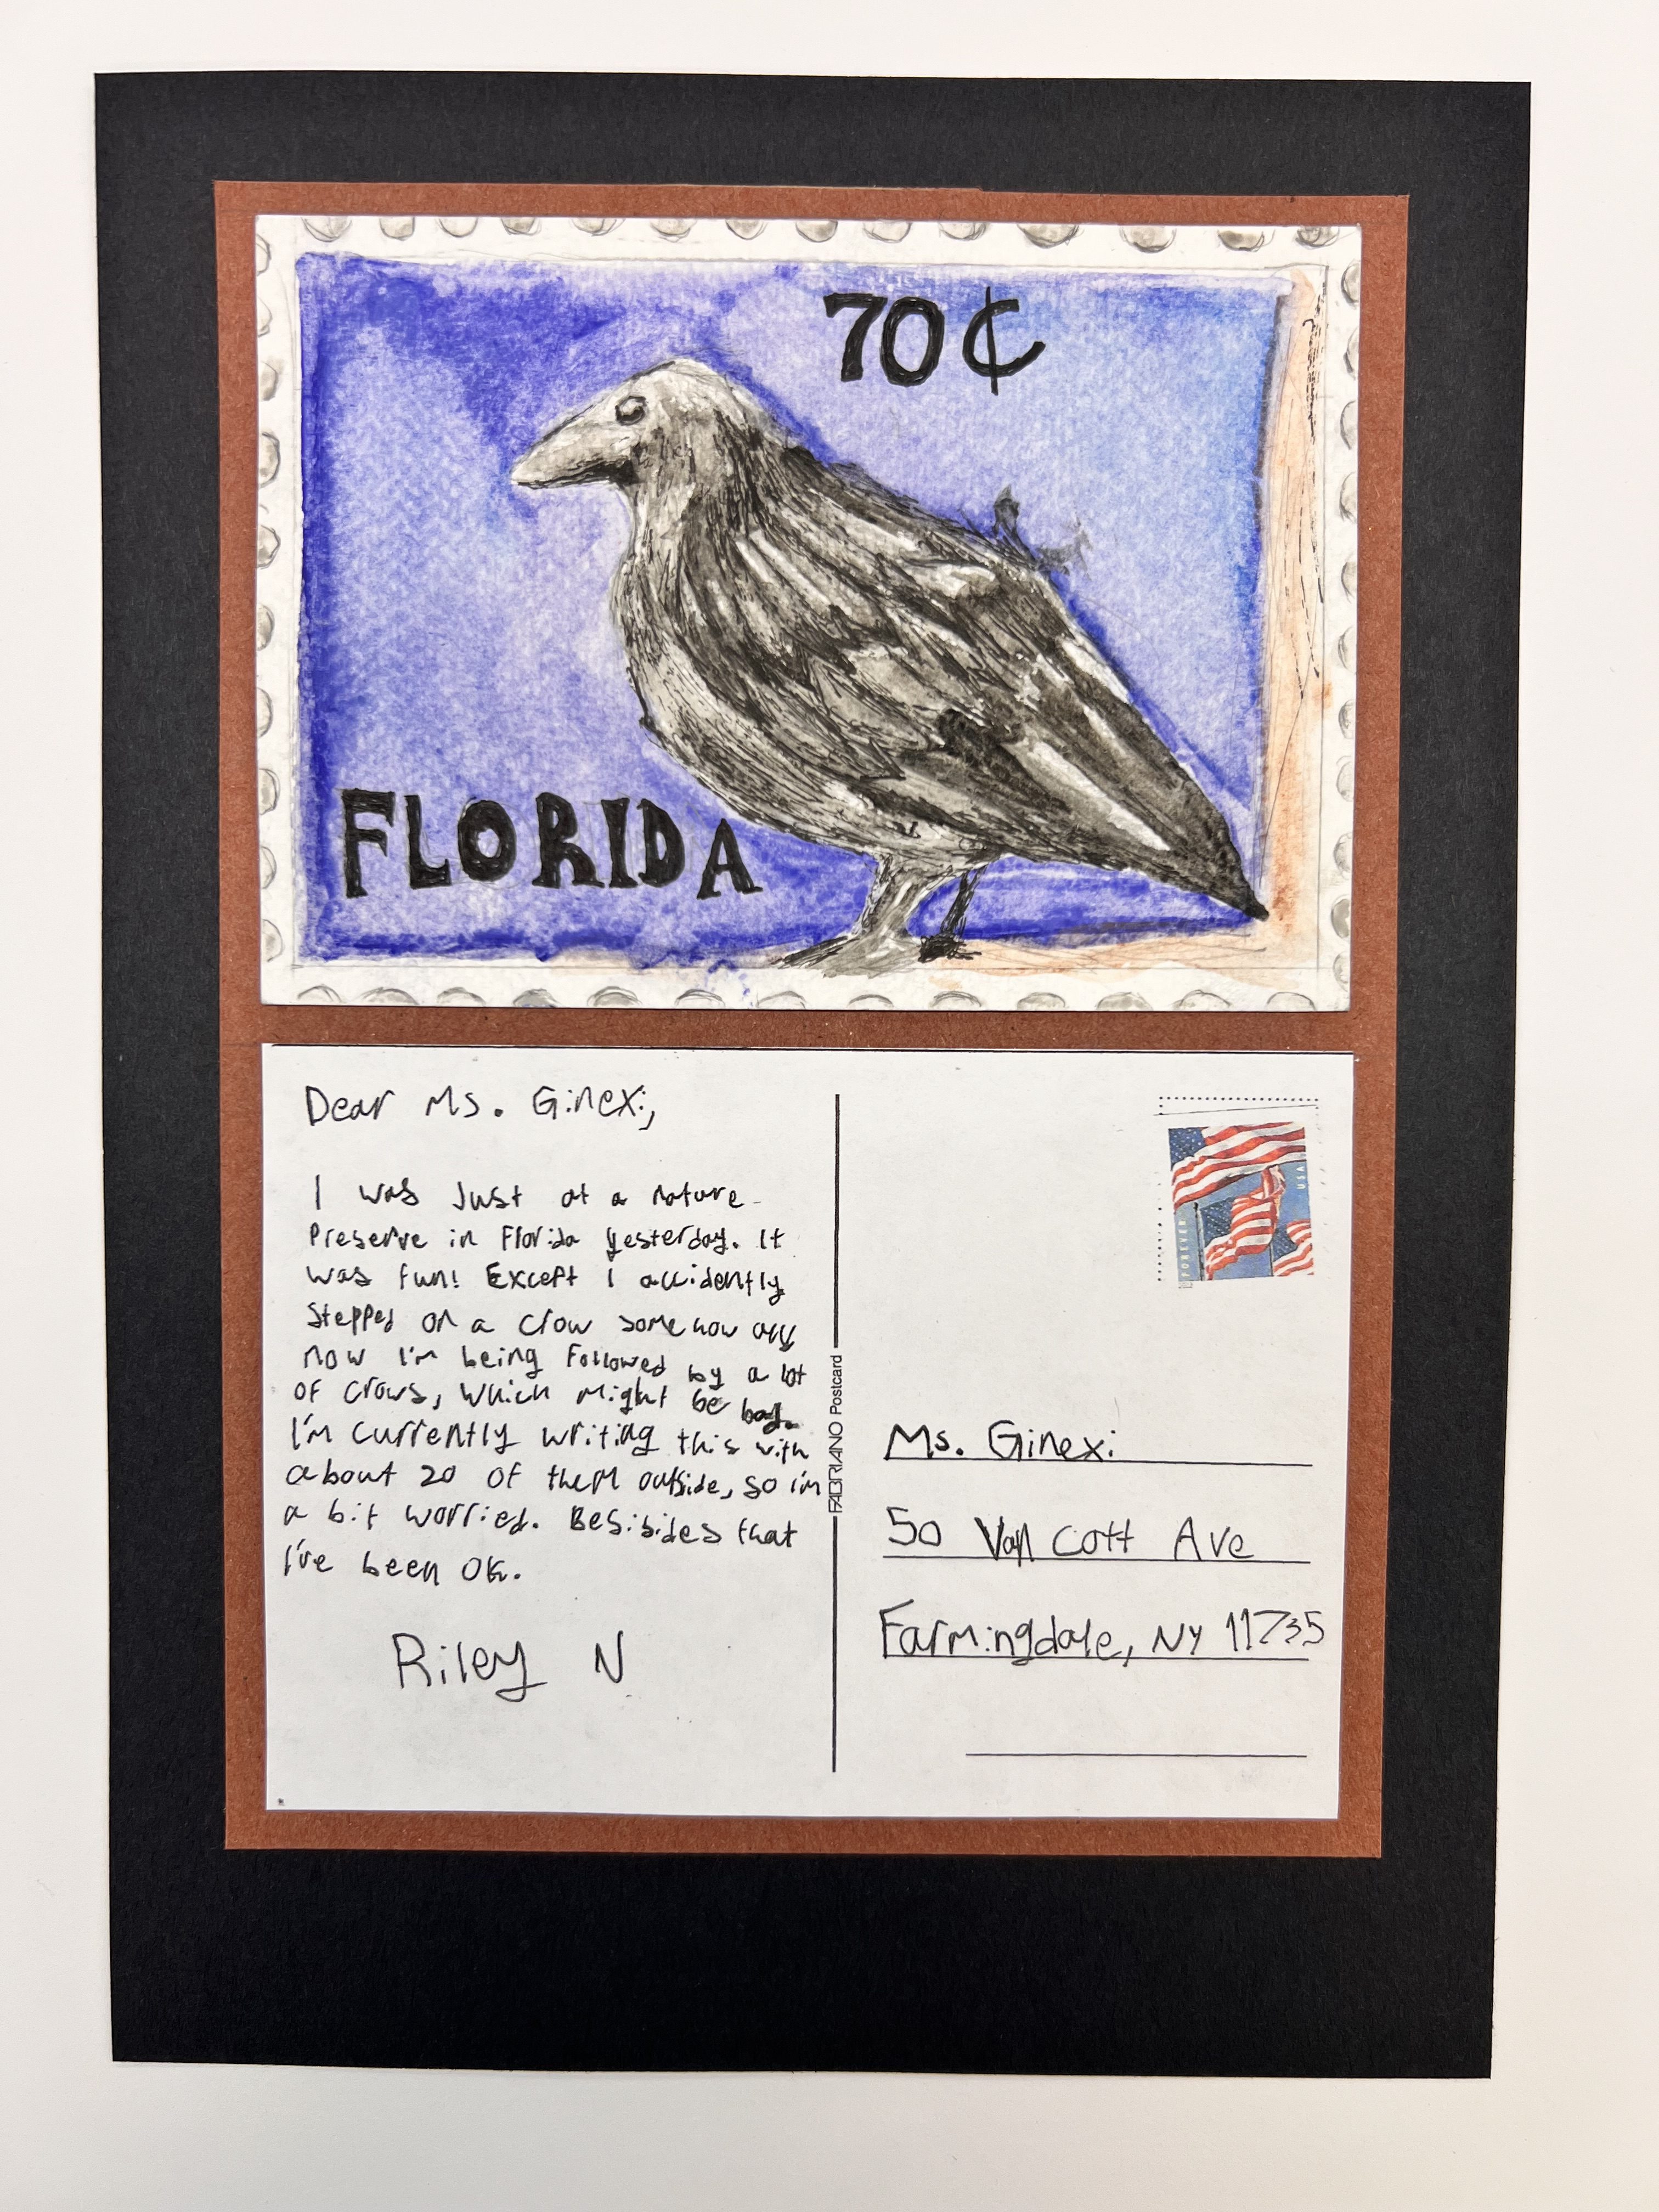 70¢
FLORIDA
Dear Ms. Ginexi,
I was Just at a nature
Preserve in Florida yesterday. It
was fun! Except I accidently
Stepped on a crow somehow and
now I'm being Followed by a lot
of crows, which might be bad.
I'm currently writing this with
about 20 of them outside, so i'm
a bit worried. Besibides that
I've been OK.
Riley N
FABRIANO Postcard
FOREVER
USA
Ms. Ginexi
50 Van Cott Ave
Farmingdale, NY 11735